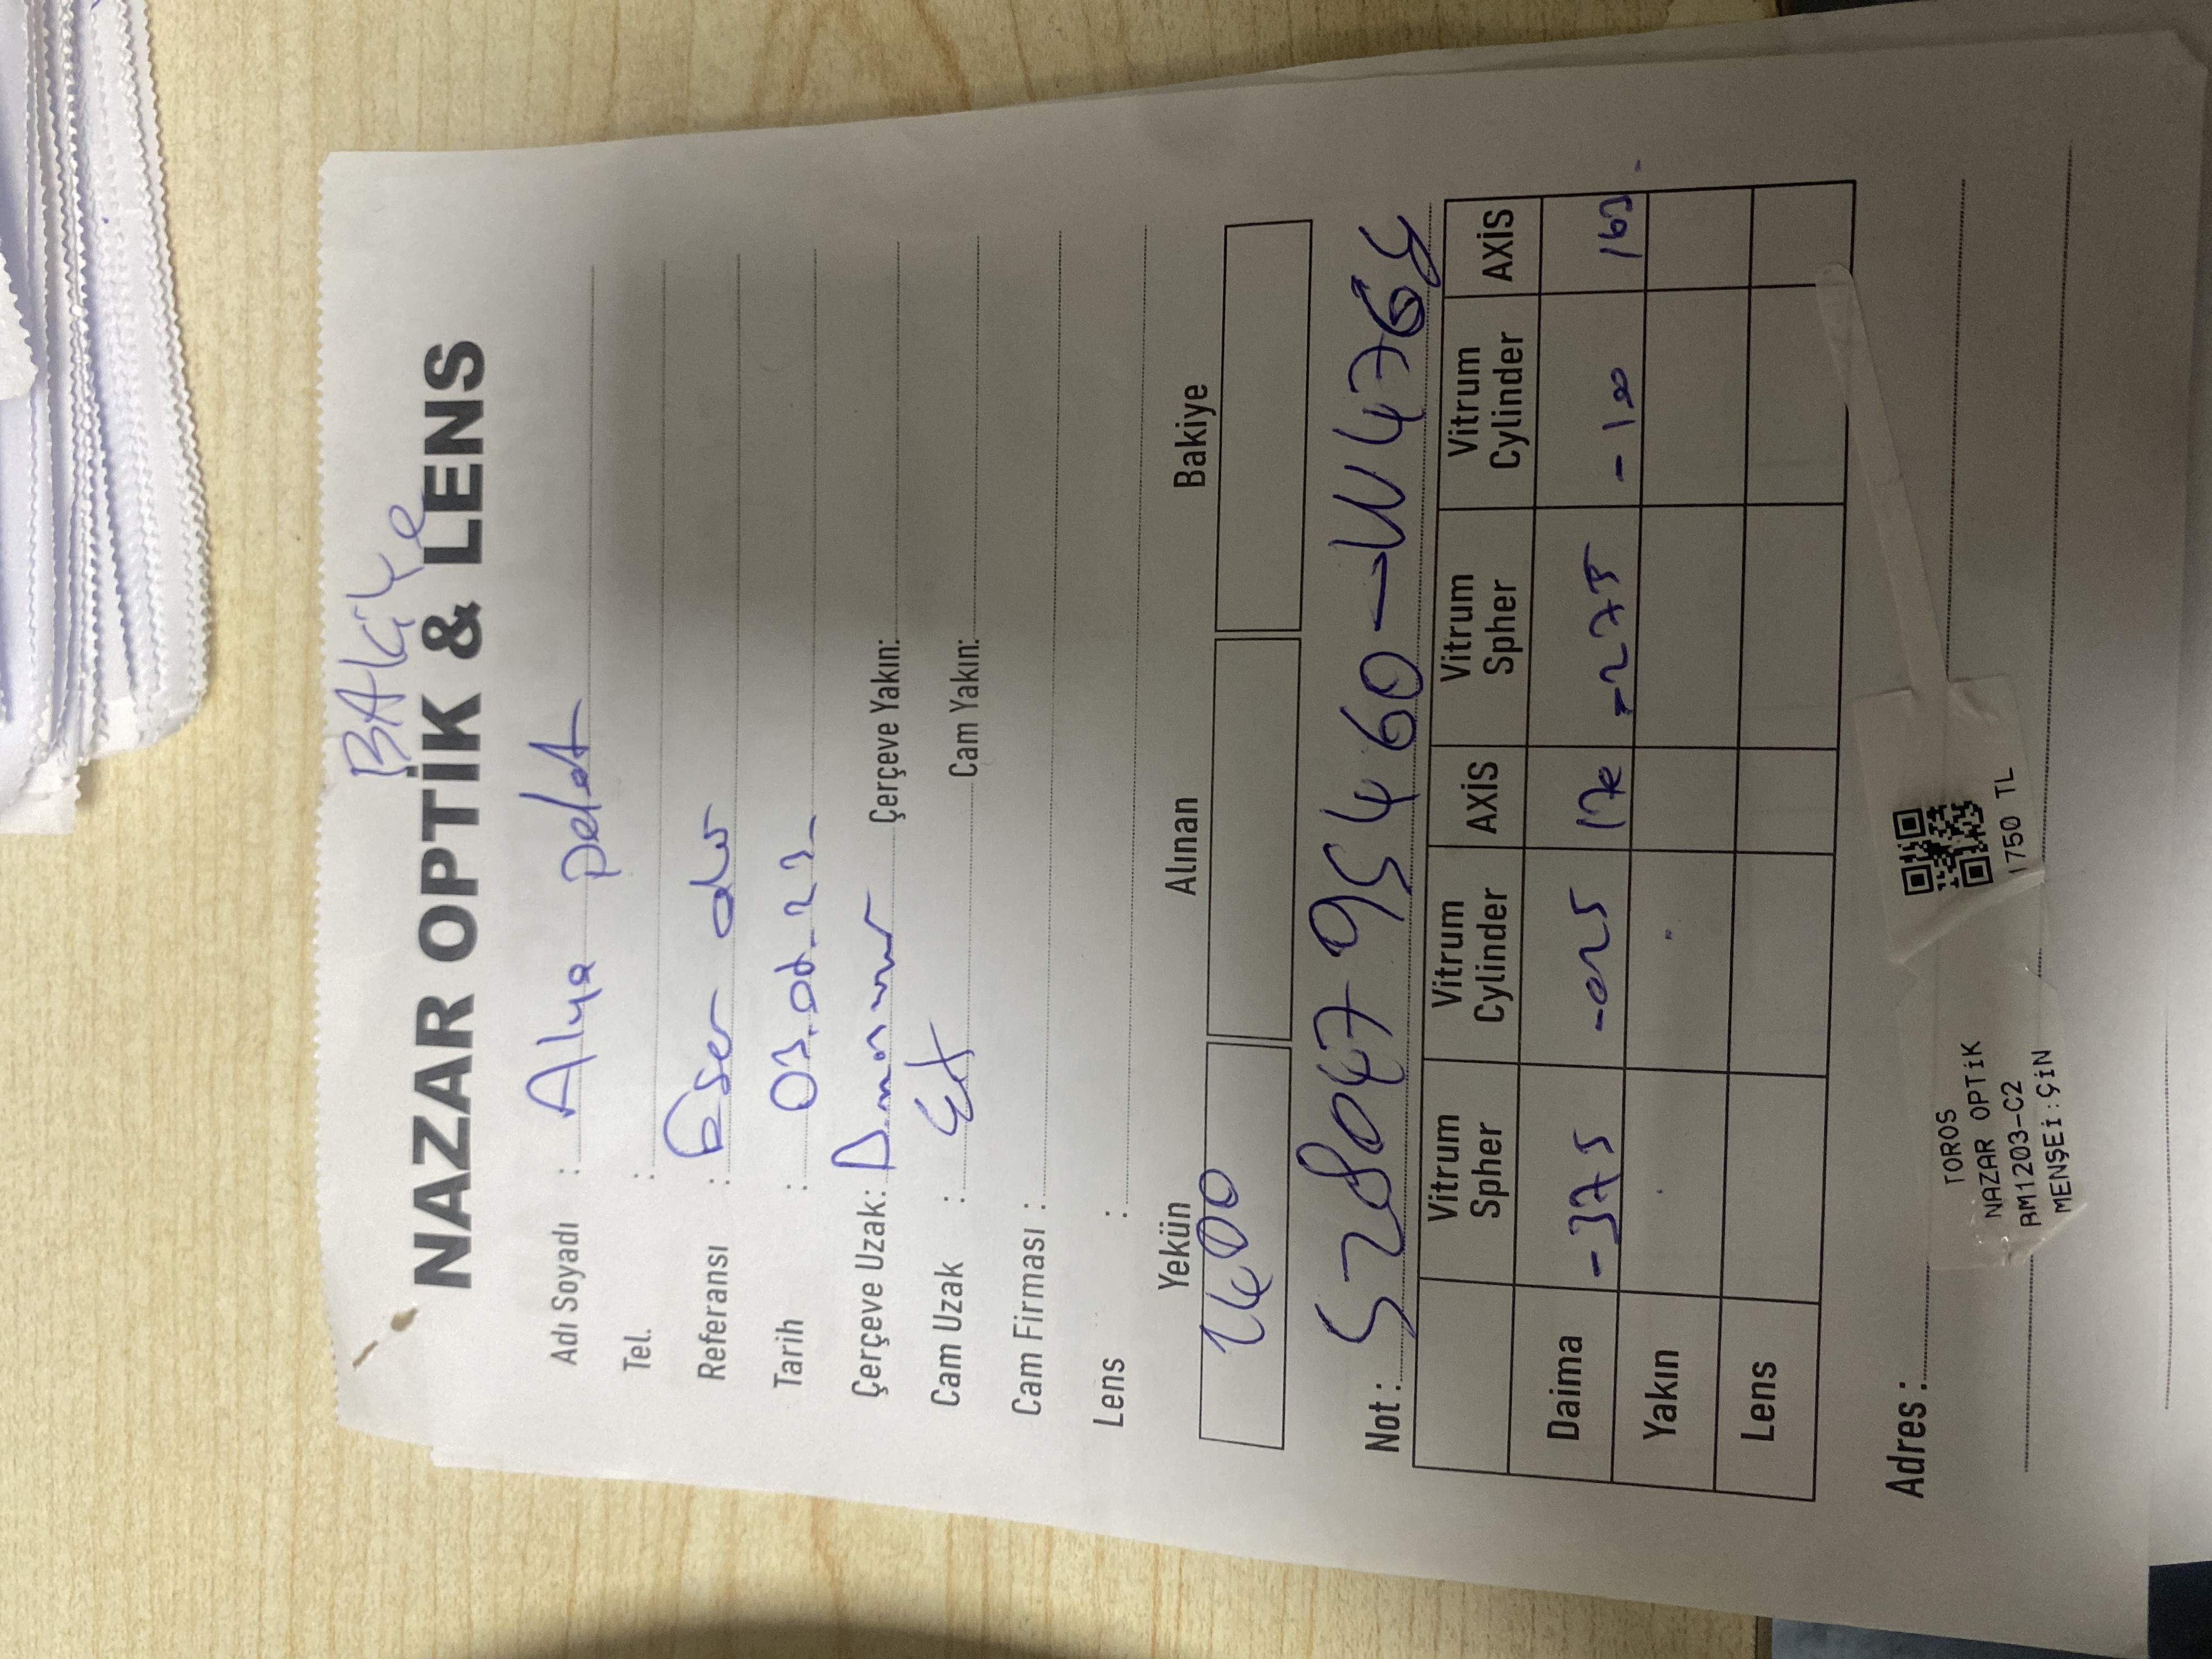 BAKiYe
NAZAR OPTİK & LENS
Adı Soyadı : Alya polat
Tel. :
Referansı : Eser
Tarih : 03.
Çerçeve Uzak: Çerçeve Yakın:
Cam Uzak : Cam Yakın:
Cam Firması :
Lens :
Yekün Alınan Bakiye
1400
Not : 52804795460-W476
Vitrum Spher Vitrum Cylinder AXİS Vitrum Spher Vitrum Cylinder AXİS
Daima -375 -025 170 -275 -100
Yakın
Lens
Adres :
TOROS
NAZAR OPTiK
RM1203-C2
MENŞEi:ÇiN
1750 TL